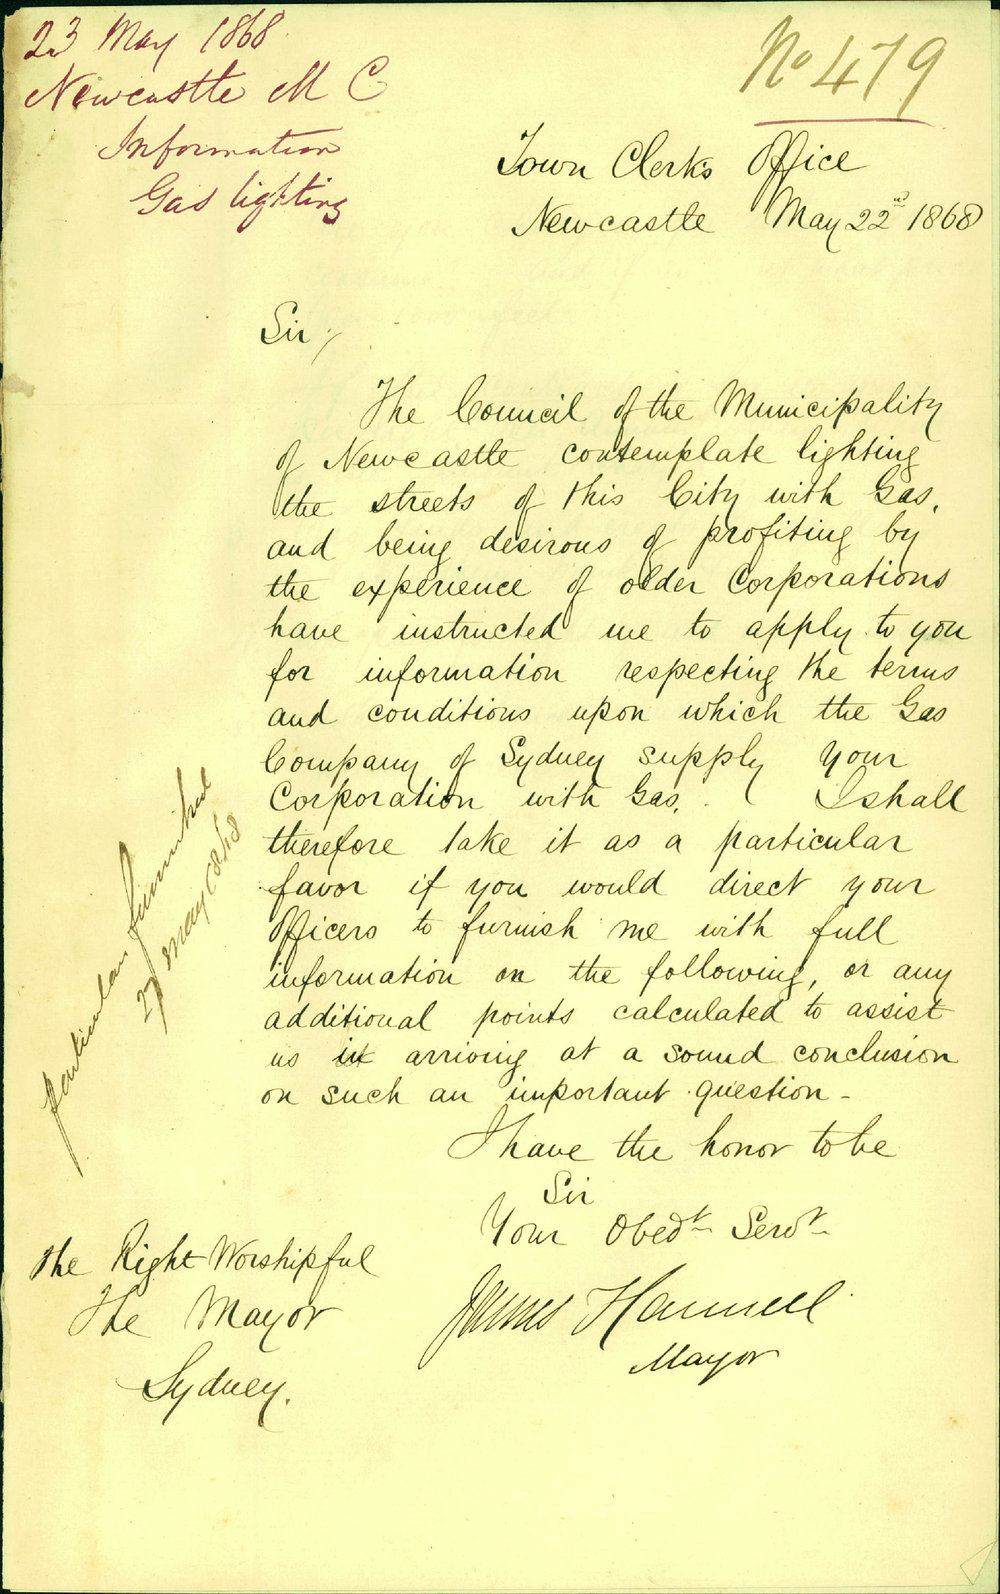 23 May 1868
Newcastle M C
Information
Gas lighting
No 479
Town Clerk's Office
Newcastle May 22d 1868
Sir,
The Council of the Municipality
of Newcastle contemplate lighting
the streets of this City with Gas,
and being desirous of profiting by
the experience of older Corporations
have instructed me to apply to you
for information respecting the terms
and conditions upon which the Gas
Company of Sydney supply your
Corporation with Gas. I shall
therefore take it as a particular
favor if you would direct your
Officers to furnish me with full
information on the following, or any
additional points calculated to assist
us in arriving at a sound conclusion
on such an important question -
I have the honor to be
Sir
Your Obedt Servt
James Hannell
Mayor
The Right Worshipful
The Mayor
Sydney.
Particulars furnished
27 May 1868